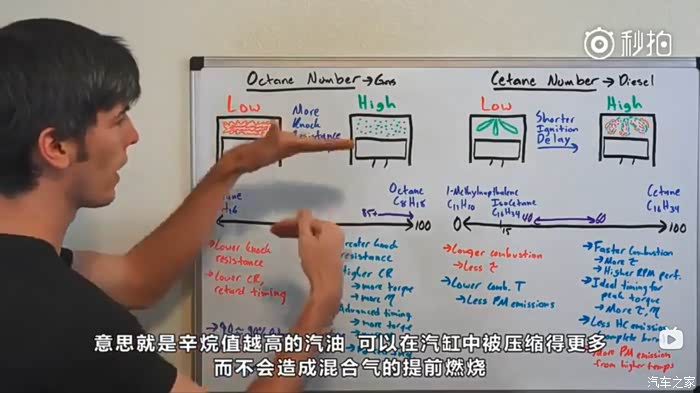 秒拍
Octane Number → Gas
Cetane Number → Diesel
Low
More
Knock
High
Low
Shorter
Ignition
Delay
High
Octane
C8H18
85+
100
1-Methylnaphthalene
C11H10
Isocetane
C16H34
Cetane
C16H34
0
15
40
60
100
→ Lower knock
resistance
→ Lower CR,
retard timing
resistance
Higher CR
→ more torque
→ more η
Advanced timing
→ more torque
→ Longer combustion
→ Less τ
→ Lower Comb. T
→ Less PM emissions
→ Faster Combustion
→ More τ
→ Higher RPM perf.
→ Ideal timing for
peak torque
→ More τ, η
→ Less HC emissions
→ More PM emission
from higher temps
意思就是辛烷值越高的汽油 可以在汽缸中被压缩得更多
而不会造成混合气的提前燃烧
汽车之家